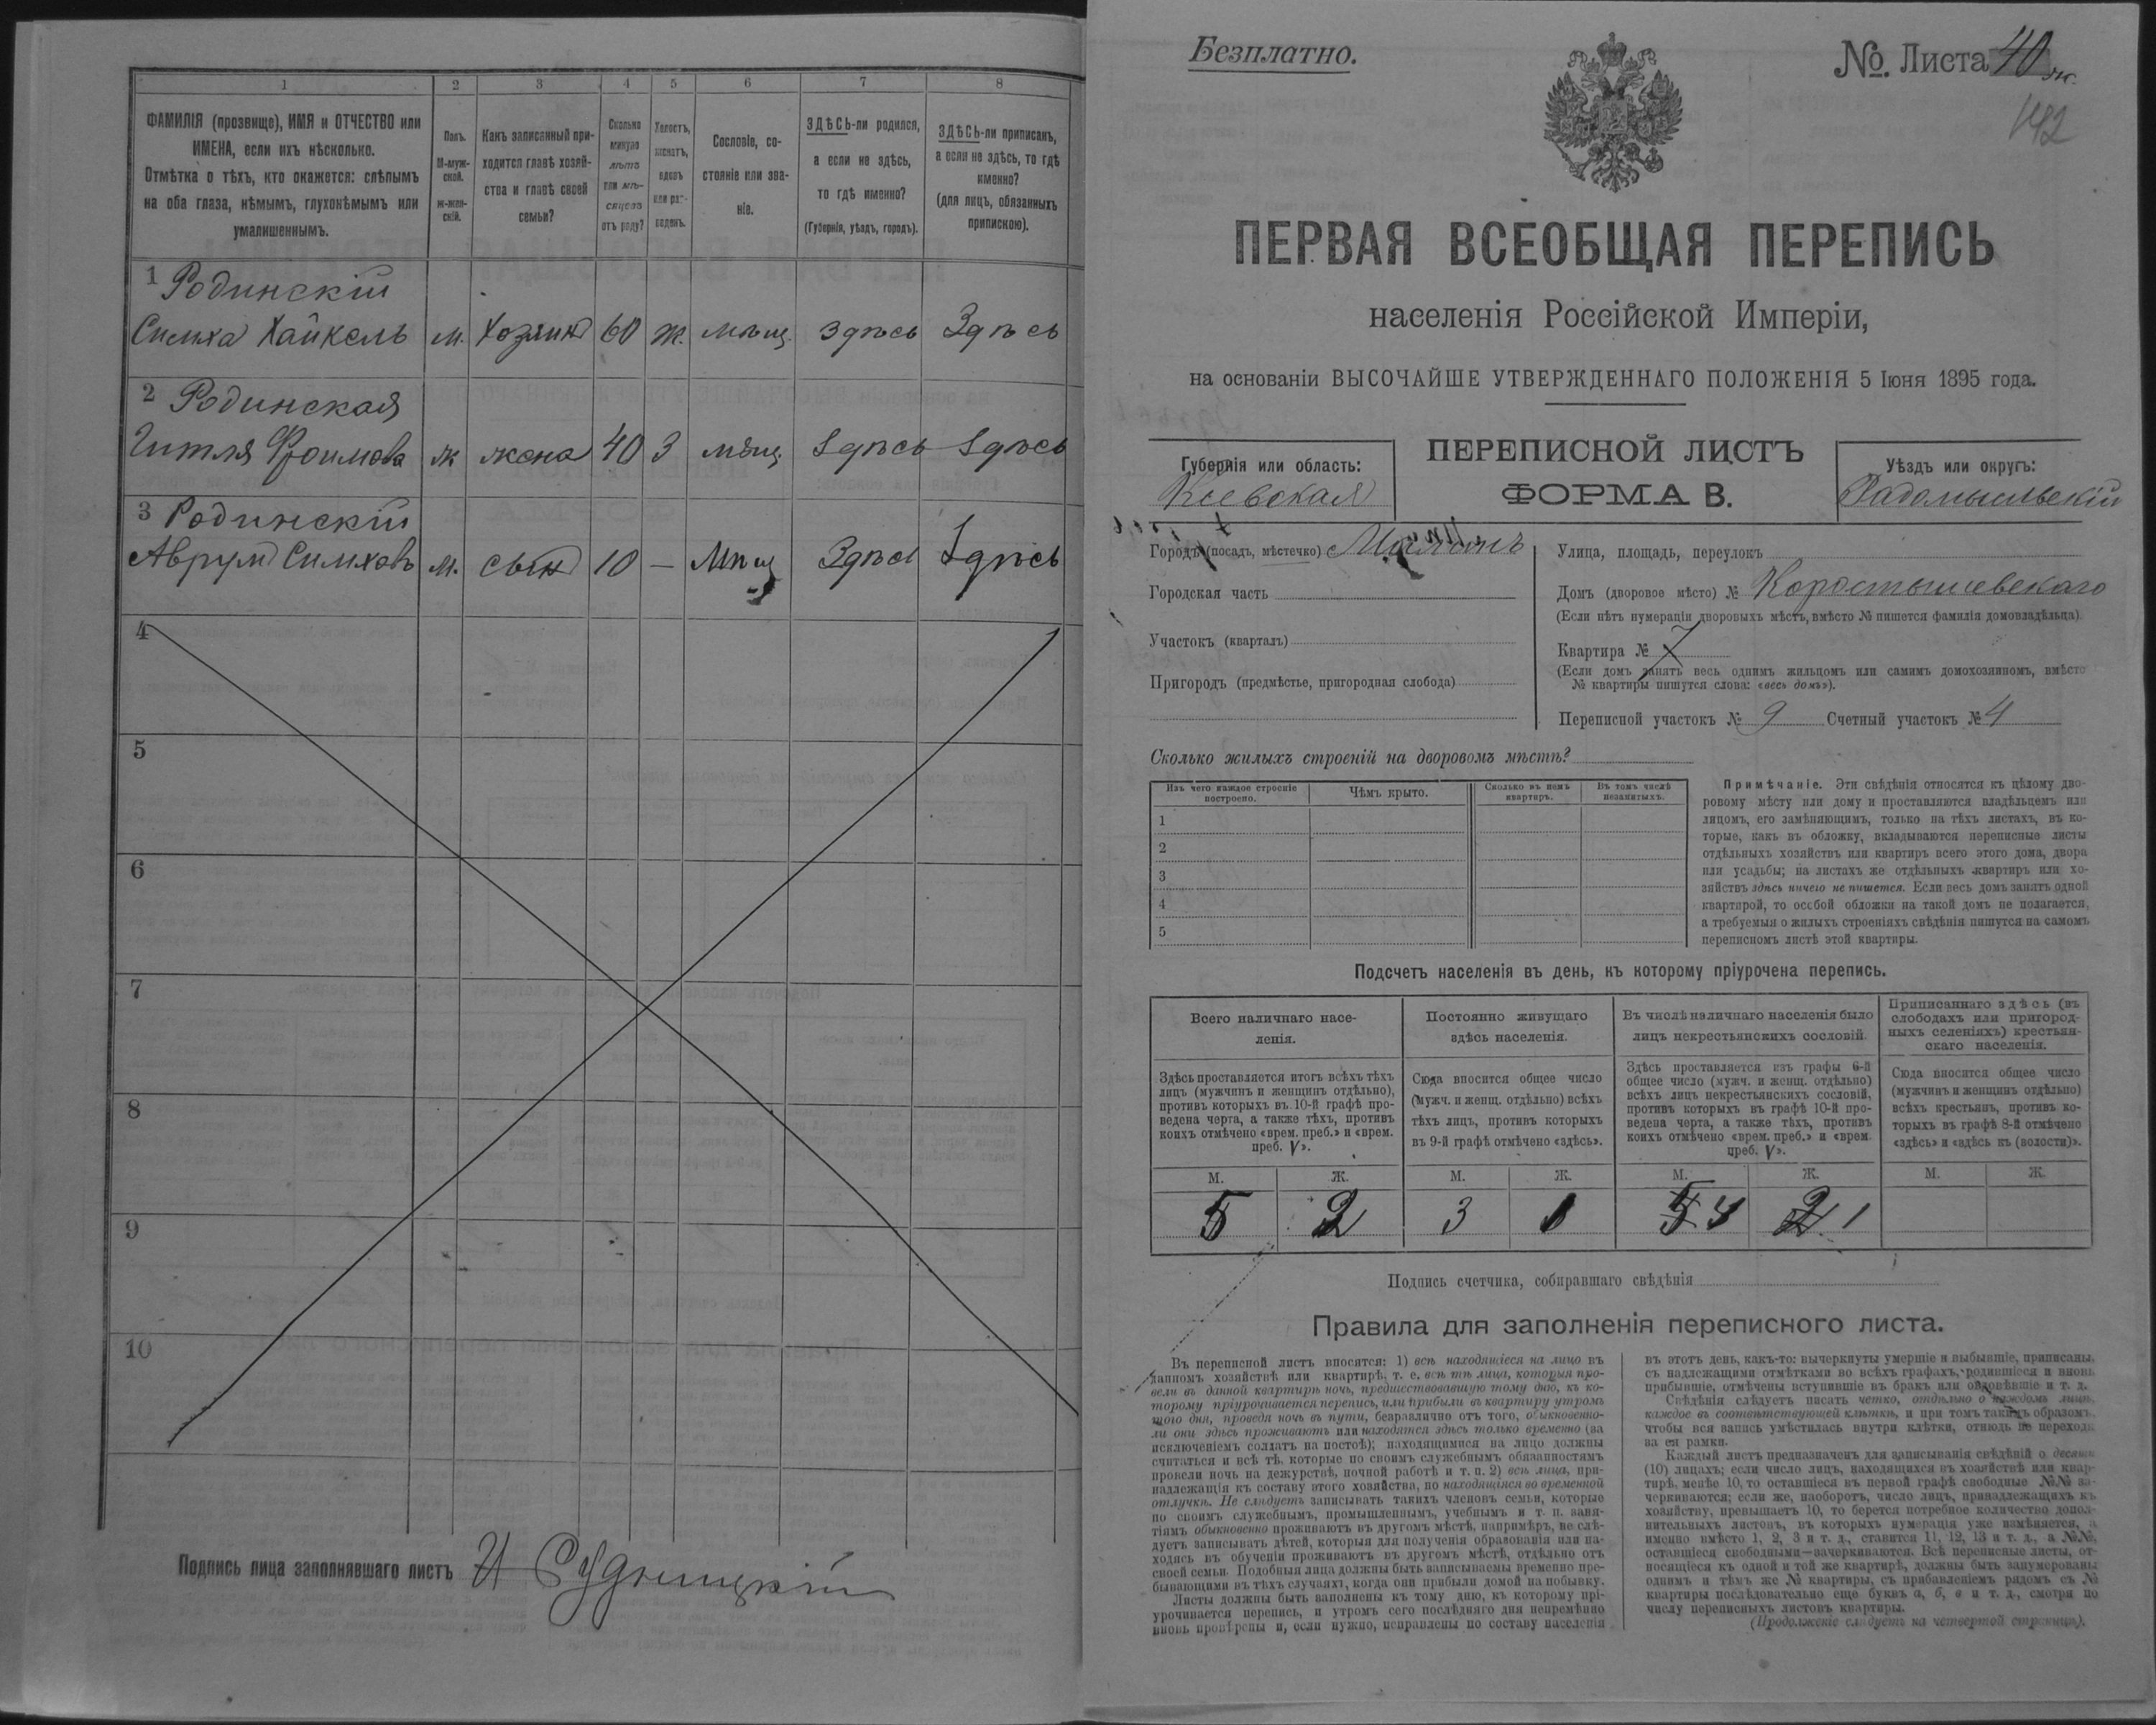 1 2 3 4 5 6 7 8
ФАМИЛІЯ (прозвище), ИМЯ и ОТЧЕСТВО или
ИМЕНА, если ихъ нѣсколько.
Отмѣтка о тѣхъ, кто окажется: слѣпымъ
на оба глаза, нѣмымъ, глухонѣмымъ или
умалишеннымъ.
Полъ.
М-муж-
ской.
Ж-жен-
скій.
Какъ записанный при-
ходится главѣ хозяй-
ства и главѣ своей
семьи?
Сколько
минуло
лѣтъ
или мѣ-
сяцевъ
отъ роду?
Холостъ,
женатъ,
вдовъ
или раз-
веденъ.
Сословіе, со-
стояніе или зва-
ніе.
ЗДѢСЬ-ли родился,
а если не здѣсь,
то гдѣ именно?
(Губернія, уѣздъ, городъ).
ЗДѢСЬ-ли приписанъ,
а если не здѣсь, то гдѣ
именно?
(для лицъ, обязанныхъ
припискою).
1 Родинскій
Симха Хайкель м. Хозяинъ 60 ж. мѣщ. здѣсь Здѣсь
2 Родинская
Гитля Фроимова ж жена 40 З мѣщ. Здѣсь Здѣсь
3 Родинскій
Аврумъ Симховъ м. сынъ 10 — Мѣщ Здѣсь Здѣсь
4
5
6
7
8
9
10
Подпись лица заполнявшаго листъ И Рудницкій
Безплатно.
№. Листа 40
142
ПЕРВАЯ ВСЕОБЩАЯ ПЕРЕПИСЬ
населенія Россійской Имперіи,
на основаніи ВЫСОЧАЙШЕ УТВЕРЖДЕННАГО ПОЛОЖЕНІЯ 5 Іюня 1895 года.
Губернія или область:
Кіевская
ПЕРЕПИСНОЙ ЛИСТЪ
ФОРМА В.
Уѣздъ или округъ:
Радомысльскій
Городъ (посадъ, мѣстечко) Малинъ
Городская часть
Участокъ (кварталъ)
Пригородъ (предмѣстье, пригородная слобода)
Улица, площадь, переулокъ
Домъ (дворовое мѣсто) № Коростышевскаго
(Если нѣтъ нумераціи дворовыхъ мѣстъ, вмѣсто № пишется фамилія домовладѣльца).
Квартира № 7
(Если домъ занятъ весь однимъ жильцомъ или самимъ домохозяиномъ, вмѣсто
№ квартиры пишутся слова: «весь домъ»).
Переписной участокъ № 9 Счетный участокъ № 4
Сколько жилыхъ строеній на дворовомъ мѣстѣ?
Изъ чего каждое строеніе
построено.
Чѣмъ крыто.
Сколько въ немъ
квартиръ.
Въ томъ числѣ
незанятыхъ.
1
2
3
4
5
Примѣчаніе. Эти свѣдѣнія относятся къ цѣлому дво-
ровому мѣсту или дому и проставляются владѣльцемъ или
лицомъ, его замѣняющимъ, только на тѣхъ листахъ, въ ко-
торые, какъ въ обложку, вкладываются переписные листы
отдѣльныхъ хозяйствъ или квартиръ всего этого дома, двора
или усадьбы; на листахъ же отдѣльныхъ квартиръ или хо-
зяйствъ здѣсь ничего не пишется. Если весь домъ занятъ одной
квартирой, то особой обложки на такой домъ не полагается,
а требуемыя о жилыхъ строеніяхъ свѣдѣнія пишутся на самомъ
переписномъ листѣ этой квартиры.
Подсчетъ населенія въ день, къ которому пріурочена перепись.
Всего наличнаго насе-
ленія.
Постоянно живущаго
здѣсь населенія.
Въ числѣ наличнаго населенія было
лицъ некрестьянскихъ сословій.
Приписаннаго здѣсь (въ
слободахъ или пригород-
ныхъ селеніяхъ) крестьян-
скаго населенія.
Здѣсь проставляется итогъ всѣхъ тѣхъ
лицъ (мужчинъ и женщинъ отдѣльно),
противъ которыхъ въ 10-й графѣ про-
ведена черта, а также тѣхъ, противъ
коихъ отмѣчено «врем. преб.» и «врем.
преб. V».
Сюда вносится общее число
(мужч. и женщ. отдѣльно) всѣхъ
тѣхъ лицъ, противъ которыхъ
въ 9-й графѣ отмѣчено «здѣсь».
Здѣсь проставляется изъ графы 6-й
общее число (мужч. и женщ. отдѣльно)
всѣхъ лицъ некрестьянскихъ сословій,
противъ которыхъ въ графѣ 10-й про-
ведена черта, а также тѣхъ, противъ
коихъ отмѣчено «врем. преб.» и «врем.
преб. V».
Сюда вносится общее число
(мужчинъ и женщинъ отдѣльно)
всѣхъ крестьянъ, противъ ко-
торыхъ въ графѣ 8-й отмѣчено
«здѣсь» и «здѣсь къ (волости)».
М. Ж. М. Ж. М. Ж. М. Ж.
5 2 3 1 5 2 1
Подпись счетчика, собиравшаго свѣдѣнія
Правила для заполненія переписного листа.
Въ переписной листъ вносятся: 1) всѣ находящіеся на лицо въ
данномъ хозяйствѣ или квартирѣ, т. е. всѣ тѣ лица, которыя про-
вели въ данной квартирѣ ночь, предшествовавшую тому дню, къ ко-
торому пріурочивается перепись, или прибыли въ квартиру утромъ
этого дня, проведя ночь въ пути, безразлично отъ того, обыкновенно-
ли они здѣсь проживаютъ или находятся здѣсь только временно (за
исключеніемъ солдатъ на постоѣ); находящимися на лицо должны
считаться и всѣ тѣ, которые по своимъ служебнымъ обязанностямъ
провели ночь на дежурствѣ, ночной работѣ и т. п. 2) всѣ лица, при-
надлежащія къ составу этого хозяйства, но находящіяся во временной
отлучкѣ. Не слѣдуетъ записывать такихъ членовъ семьи, которые
по своимъ служебнымъ, промышленнымъ, учебнымъ и т. п. заня-
тіямъ обыкновенно проживаютъ въ другомъ мѣстѣ, напримѣръ, не слѣ-
дуетъ записывать дѣтей, которыя для полученія образованія или на-
ходясь въ обученіи проживаютъ въ другомъ мѣстѣ, отдѣльно отъ
своей семьи. Подобныя лица должны быть записываемы временно пре-
бывающими въ тѣхъ случаяхъ, когда они прибыли домой на побывку.
Листы должны быть заполнены къ тому дню, къ которому прі-
урочивается перепись, и утромъ сего послѣдняго дня непремѣнно
вновь провѣрены и, если нужно, исправлены по составу населенія
въ этотъ день, какъ-то: вычеркнуты умершіе и выбывшіе, приписаны,
съ надлежащими отмѣтками во всѣхъ графахъ, родившіеся и вновь
прибывшіе, отмѣчены вступившіе въ бракъ или овдовѣвшіе и т. д.
Свѣдѣнія слѣдуетъ писать четко, отдѣльно о каждомъ лицѣ,
каждое въ соотвѣтствующей клѣткѣ, и при томъ такимъ образомъ,
чтобы вся запись умѣстилась внутри клѣтки, отнюдь не переходя
за ея рамки.
Каждый листъ предназначенъ для записыванія свѣдѣній о десяти
(10) лицахъ; если число лицъ, находящихся въ хозяйствѣ или квар-
тирѣ, менѣе 10, то оставшіеся въ первой графѣ свободные №№ за-
черкиваются; если же, наоборотъ, число лицъ, принадлежащихъ къ
хозяйству, превышаетъ 10, то берется потребное количество допол-
нительныхъ листовъ, въ которыхъ нумерація уже измѣняется, а
именно вмѣсто 1, 2, 3 и т. д., ставится 11, 12, 13 и т. д., а №№,
оставшіеся свободными—зачеркиваются. Всѣ переписные листы, от-
носящіеся къ одной и той же квартирѣ, должны быть занумерованы
однимъ и тѣмъ же № квартиры, съ прибавленіемъ рядомъ съ №
квартиры послѣдовательно еще буквъ а, б, в и т. д., смотря по
числу переписныхъ листовъ квартиры.
(Продолженіе слѣдуетъ на четвертой страницѣ).